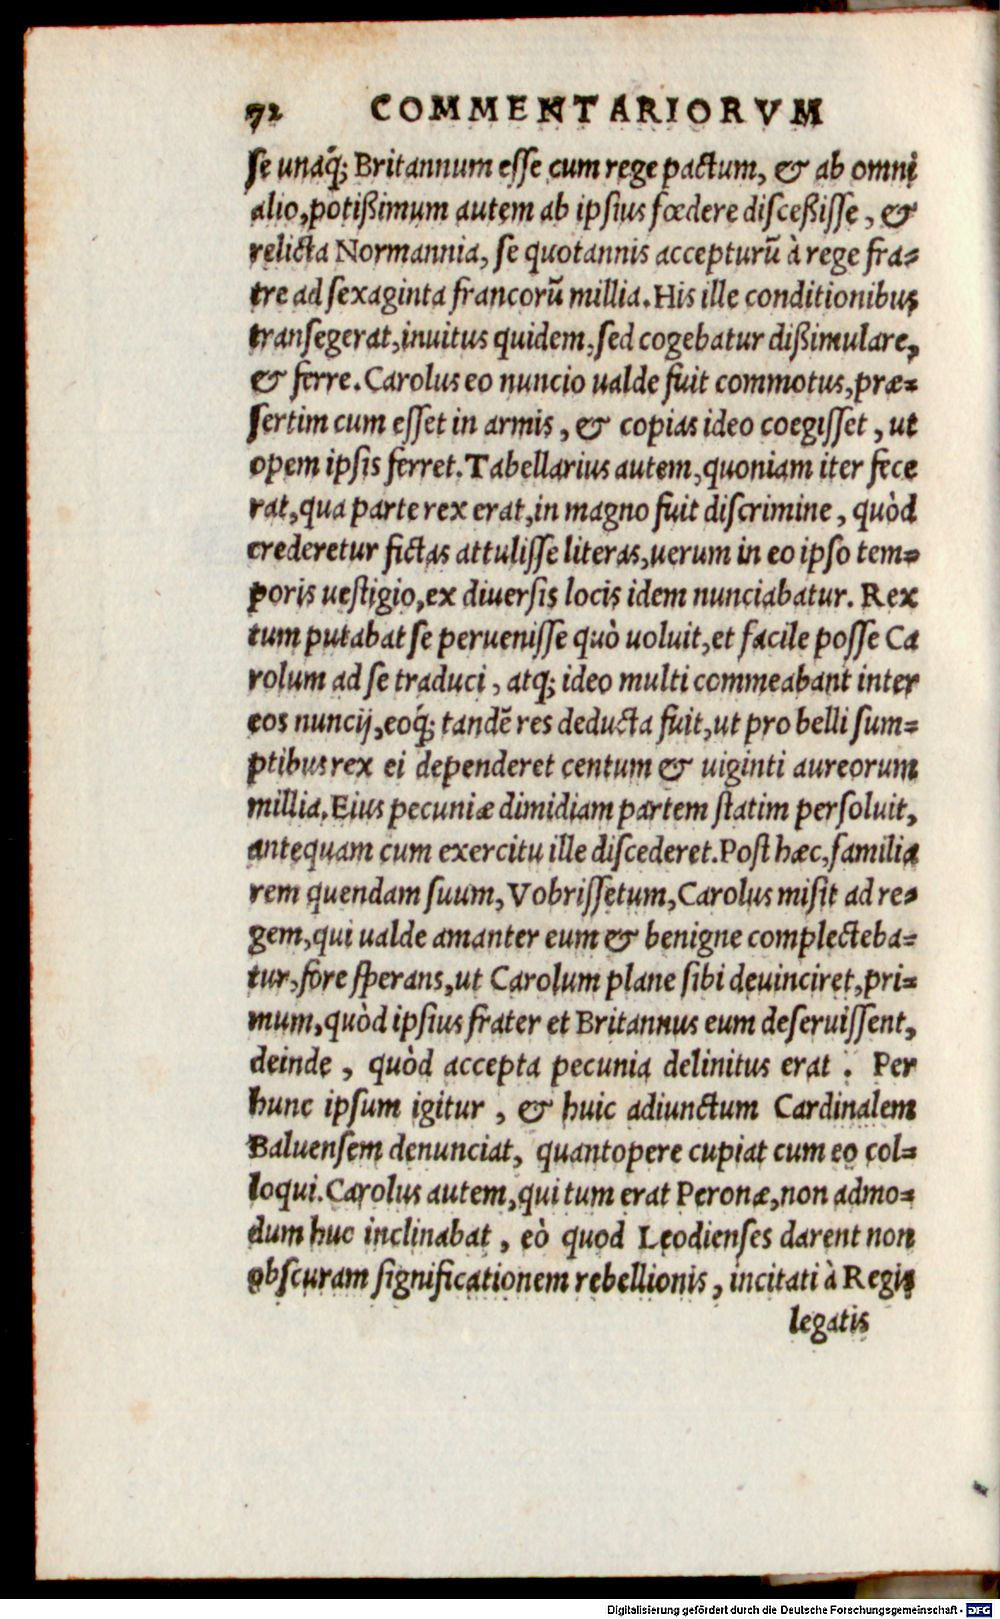 72 COMMENTARIORVM
se unaq́; Britannum esse cum rege pactum, & ab omni
alio, potißimum autem ab ipsius fœdere disceßisse, &
relicta Normannia, se quotannis accepturũ à rege fra-
tre ad sexaginta francorũ millia. His ille conditionibus
transegerat, inuitus quidem, sed cogebatur dißimulare,
& ferre. Carolus eo nuncio ualde fuit commotus, præ-
sertim cum esset in armis, & copias ideo coegisset, ut
opem ipsis ferret. Tabellarius autem, quoniam iter fece
rat, qua parte rex erat, in magno fuit discrimine, quòd
crederetur fictas attulisse literas, uerum in eo ipso tem-
poris uestigio, ex diuersis locis idem nunciabatur. Rex
tum putabat se peruenisse quò uoluit, et facile posse Ca
rolum ad se traduci, atq; ideo multi commeabant inter
eos nuncij, eoq́; tandẽ res deducta fuit, ut pro belli sum-
ptibus rex ei dependeret centum & uiginti aureorum
millia. Eius pecuniæ dimidiam partem statim persoluit,
antequam cum exercitu ille discederet. Post hæc, familia
rem quendam suum, Vobrissetum, Carolus misit ad re-
gem, qui ualde amanter eum & benigne complecteba-
tur, fore sperans, ut Carolum plane sibi deuinciret, pri-
mum, quòd ipsius frater et Britannus eum deseruissent,
deinde, quòd accepta pecunia delinitus erat. Per
hunc ipsum igitur, & huic adiunctum Cardinalem
Baluensem denunciat, quantopere cupiat cum eo col-
loqui. Carolus autem, qui tum erat Peronæ, non admo-
dum huc inclinabat, eò quod Leodienses darent non
obscuram significationem rebellionis, incitati à Regis
legatis
Digitalisierung gefördert durch die Deutsche Forschungsgemeinschaft - DFG